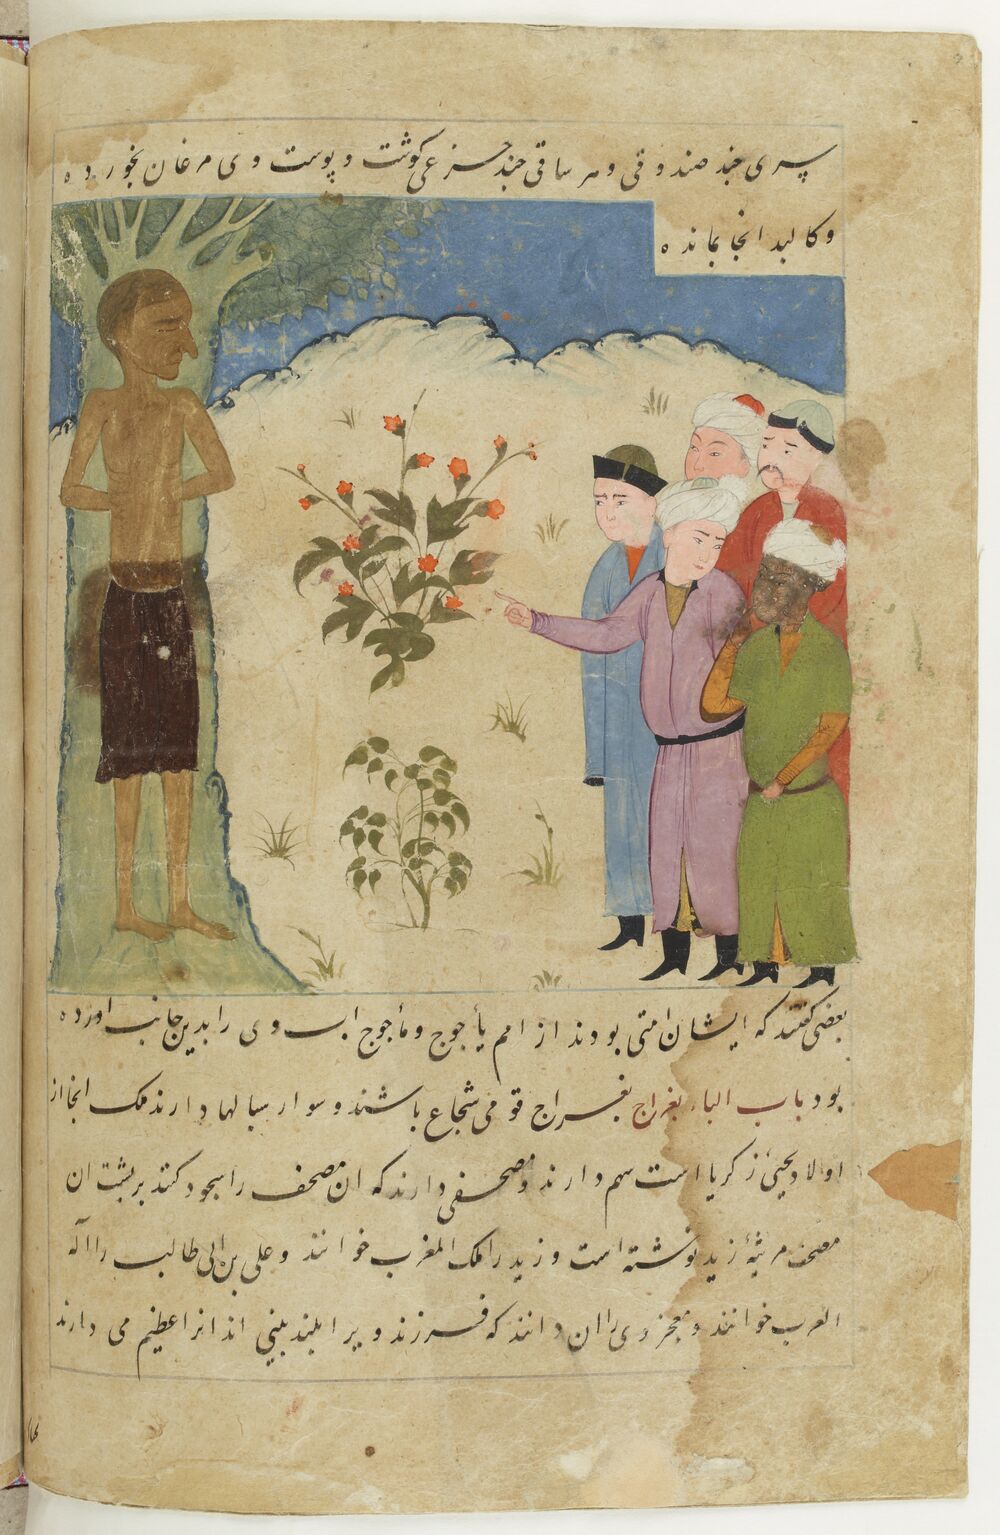 سری چند صندوقی و هر ساقی چند جزعی گوشت و پوست وی مرغان بخورده
و کالبد انجا بمانده
بعضی گفتند که ایشان امتی بودند از امم یأجوج و مأجوج اب وی را بدین جانب اورده
بود باب الباء بغراج بغراج قومی شجاع باشند و سوار سبالها دارند ملک انجا از
اولاد یحیی زکریا است سهم دارند و مصحفی دارند که ان مصحف را سجود کنند بر پشت ان
مصحف مرثیهٔ زید نوشته است و زید را ملک المغرب خوانند و علی بن ابی طالب را اله
العرب خوانند و معجز وی را ان دانند که فرزند ویرا بلند بینی اند انرا عظیم می دارند